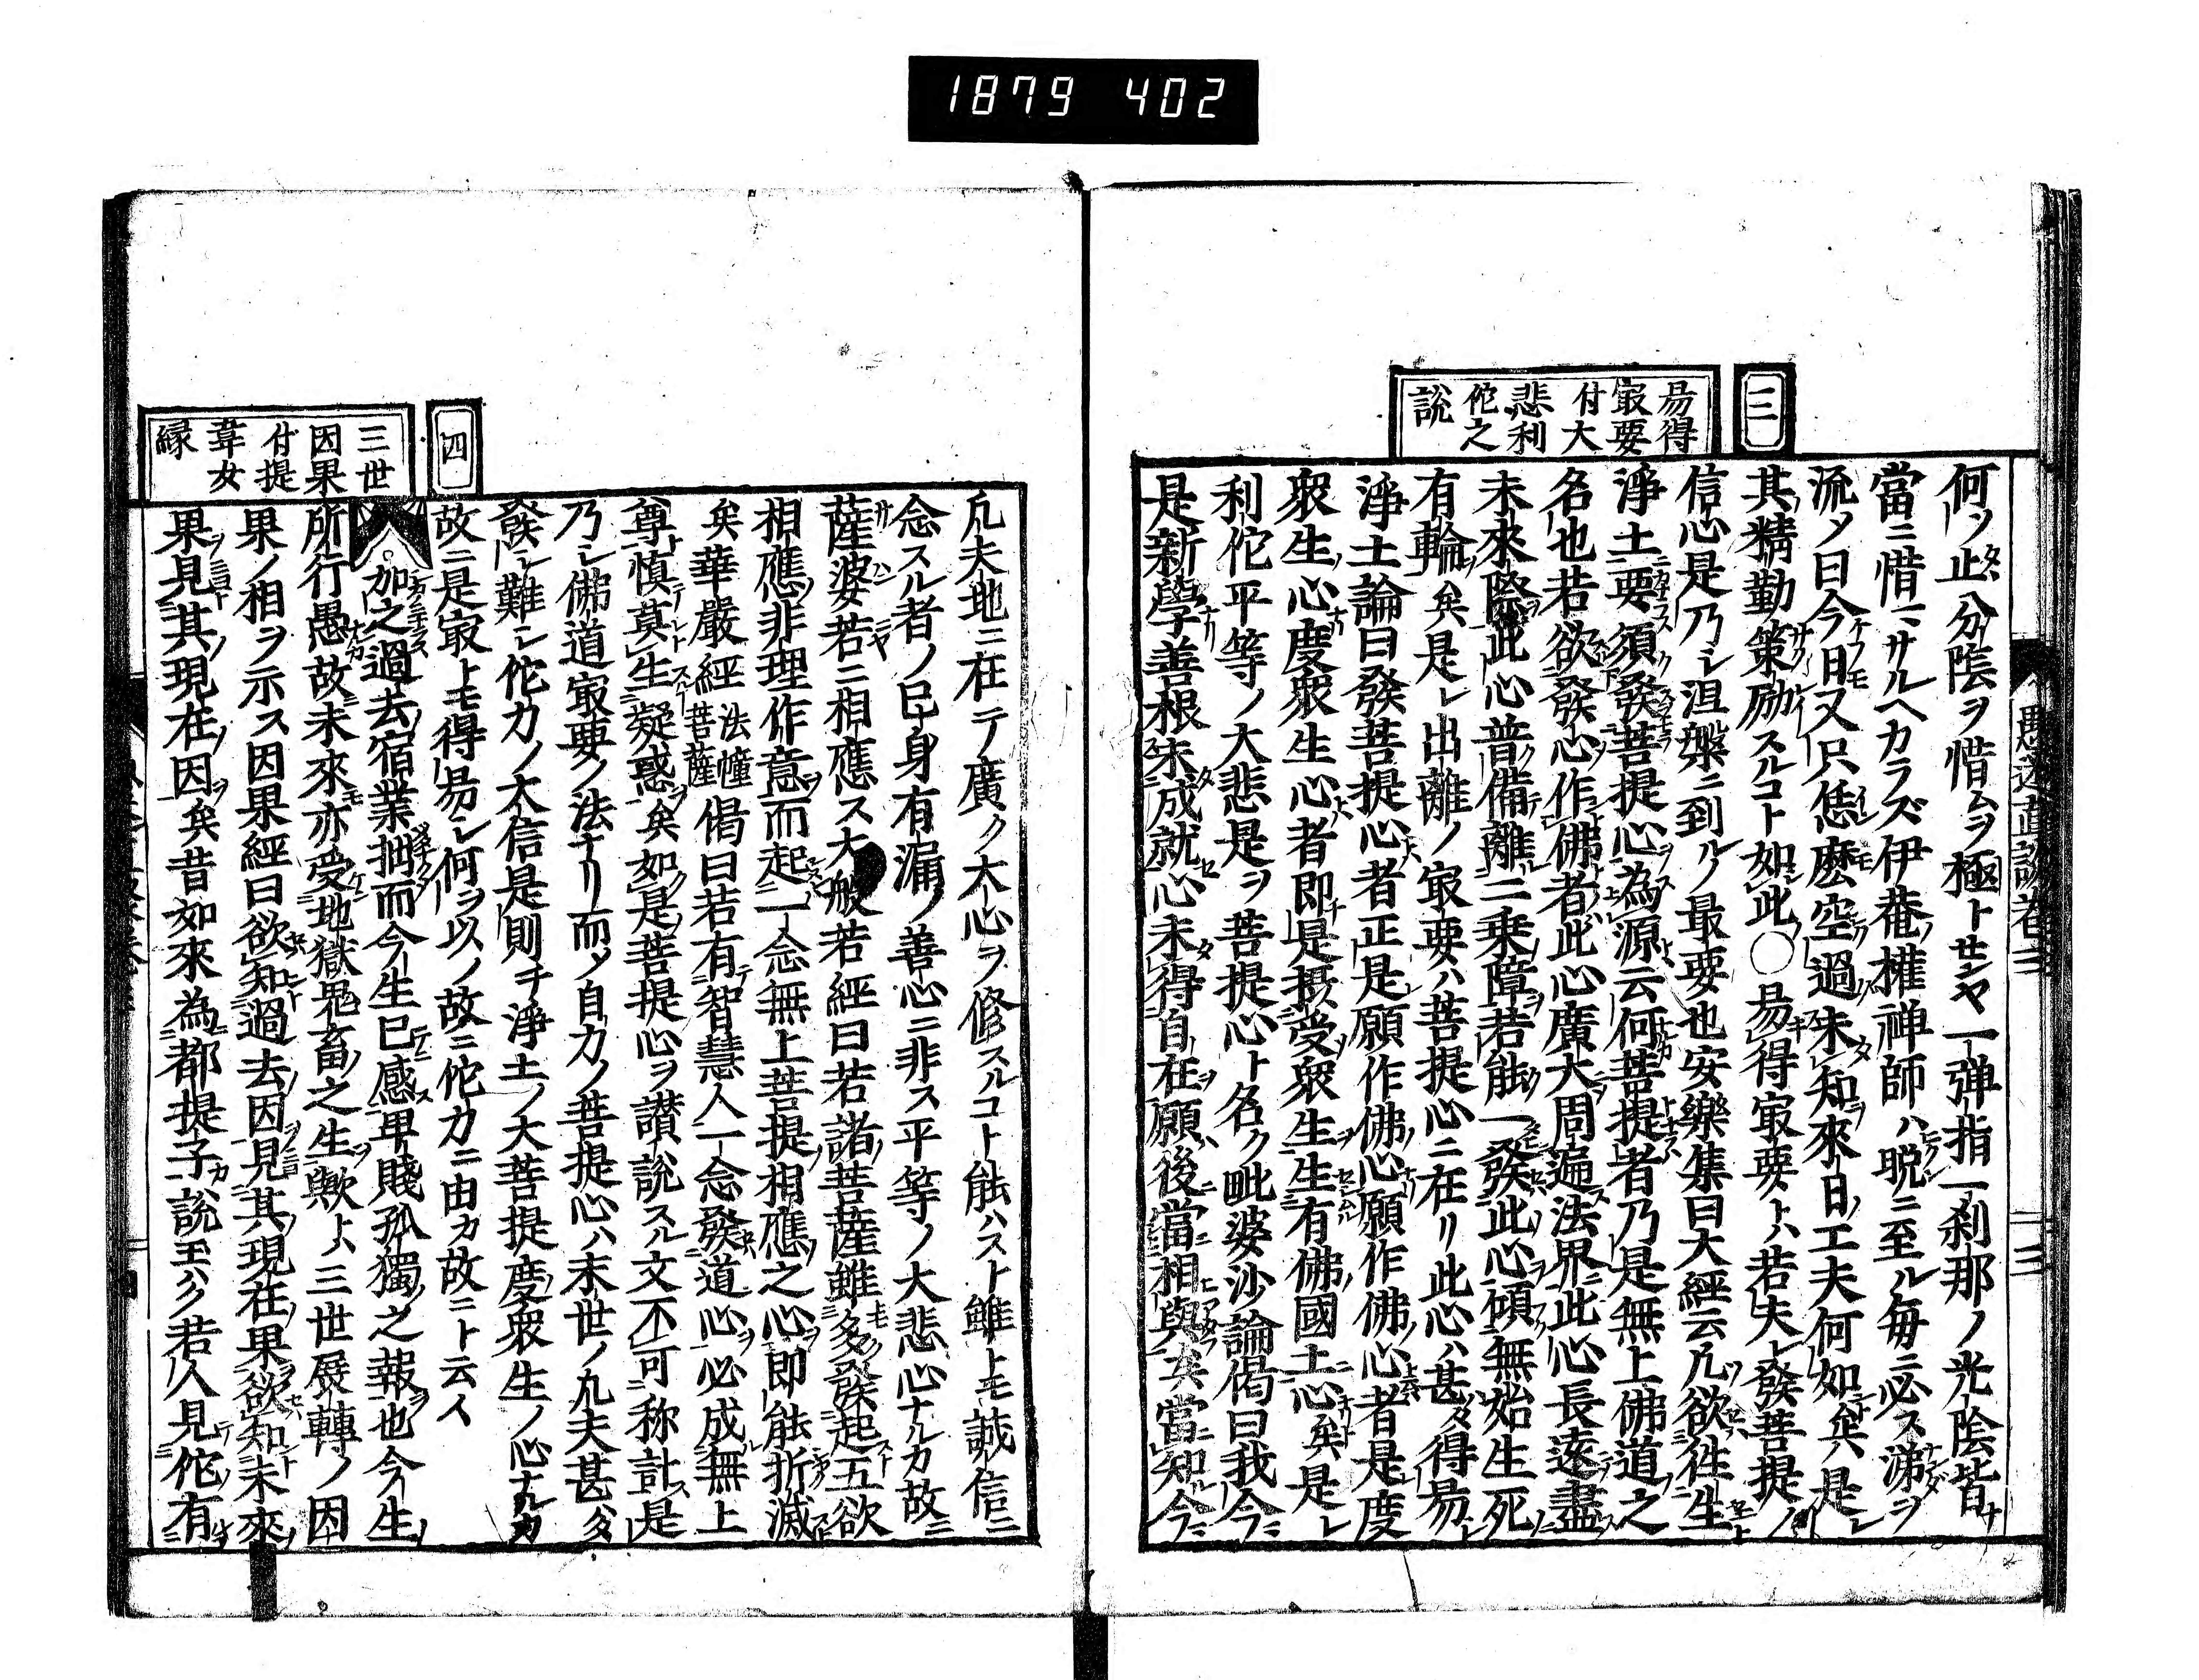 1879 402
三
易得
冣要
付大
悲利
佗之
說
何ノ止分陰ヲ惜ムヲ極トセンヤ一弾指一刹那ノ光陰皆
當ニ惜マサルヘカラズ伊菴權禅師ハ晩ニ至ル毎ニ必ス涕ヲ
流メ曰今日又只恁麽空過未知來日工夫何如矣是レ
其精勤策励スルコト如此○易得冣要トハ若夫レ發菩提ノ
信心是乃シ涅槃ニ到ルノ最要也安樂集曰大經云凡欲徃生
淨土要須發菩提心為源云何菩提者乃是無上佛道之
名也若欲發心作佛者此心廣大周遍法界此心長遠盡
未來際此心普備離二乗障若能一發此心傾無始生死
有輪矣是レ出離ノ冣要ハ菩提心ニ在リ此心ハ甚タ得易
淨土論曰發菩提心者正是願作佛心願作佛心者是度
衆生心度衆生心者即是摂受衆生生有佛國土心矣是レ
利佗平等ノ大悲是ヲ菩提心ト名ク毗婆沙論偈曰我今
是新學善根未成就心未得自在願後當相與矣當知今
四
三世
因果
付提
韋女
縁
凡夫地ニ在テ廣ク大心ヲ修スルコト能ハスト雖トモ誠信ニ
念スル者ノ已身有漏ノ善心ニ非ス平等ノ大悲心ナルカ故ニ
薩婆若ニ相應ス大般若經曰若諸菩薩雖多發起五欲
相應非理作意而起一念無上菩提相應之心即能折滅
矣華嚴經法幢菩薩偈曰若有智慧人一念發道心必成無上
尊慎莫生疑惑矣如是菩提心ヲ讃說スル文不可称計是
乃シ佛道冣要ノ法ナリ而メ自力ノ菩提心ハ末世ノ凡夫甚タ
發シ難シ佗力ノ大信是則チ淨土ノ大菩提度衆生ノ心ナルカ
故ニ是冣トモ得易シ何ヲ以ノ故ニ佗力ニ由カ故ニト云人
加之過去宿業拙而今生已感卑賤孤獨之報也今生
所行愚故未來亦受地獄鬼畜之生歟トハ三世展轉ノ因
果ノ相ヲ示ス因果經曰欲知過去因見其現在果欲知未來
果見其現在因矣昔如來為都提子說玉ハク若人見佗有